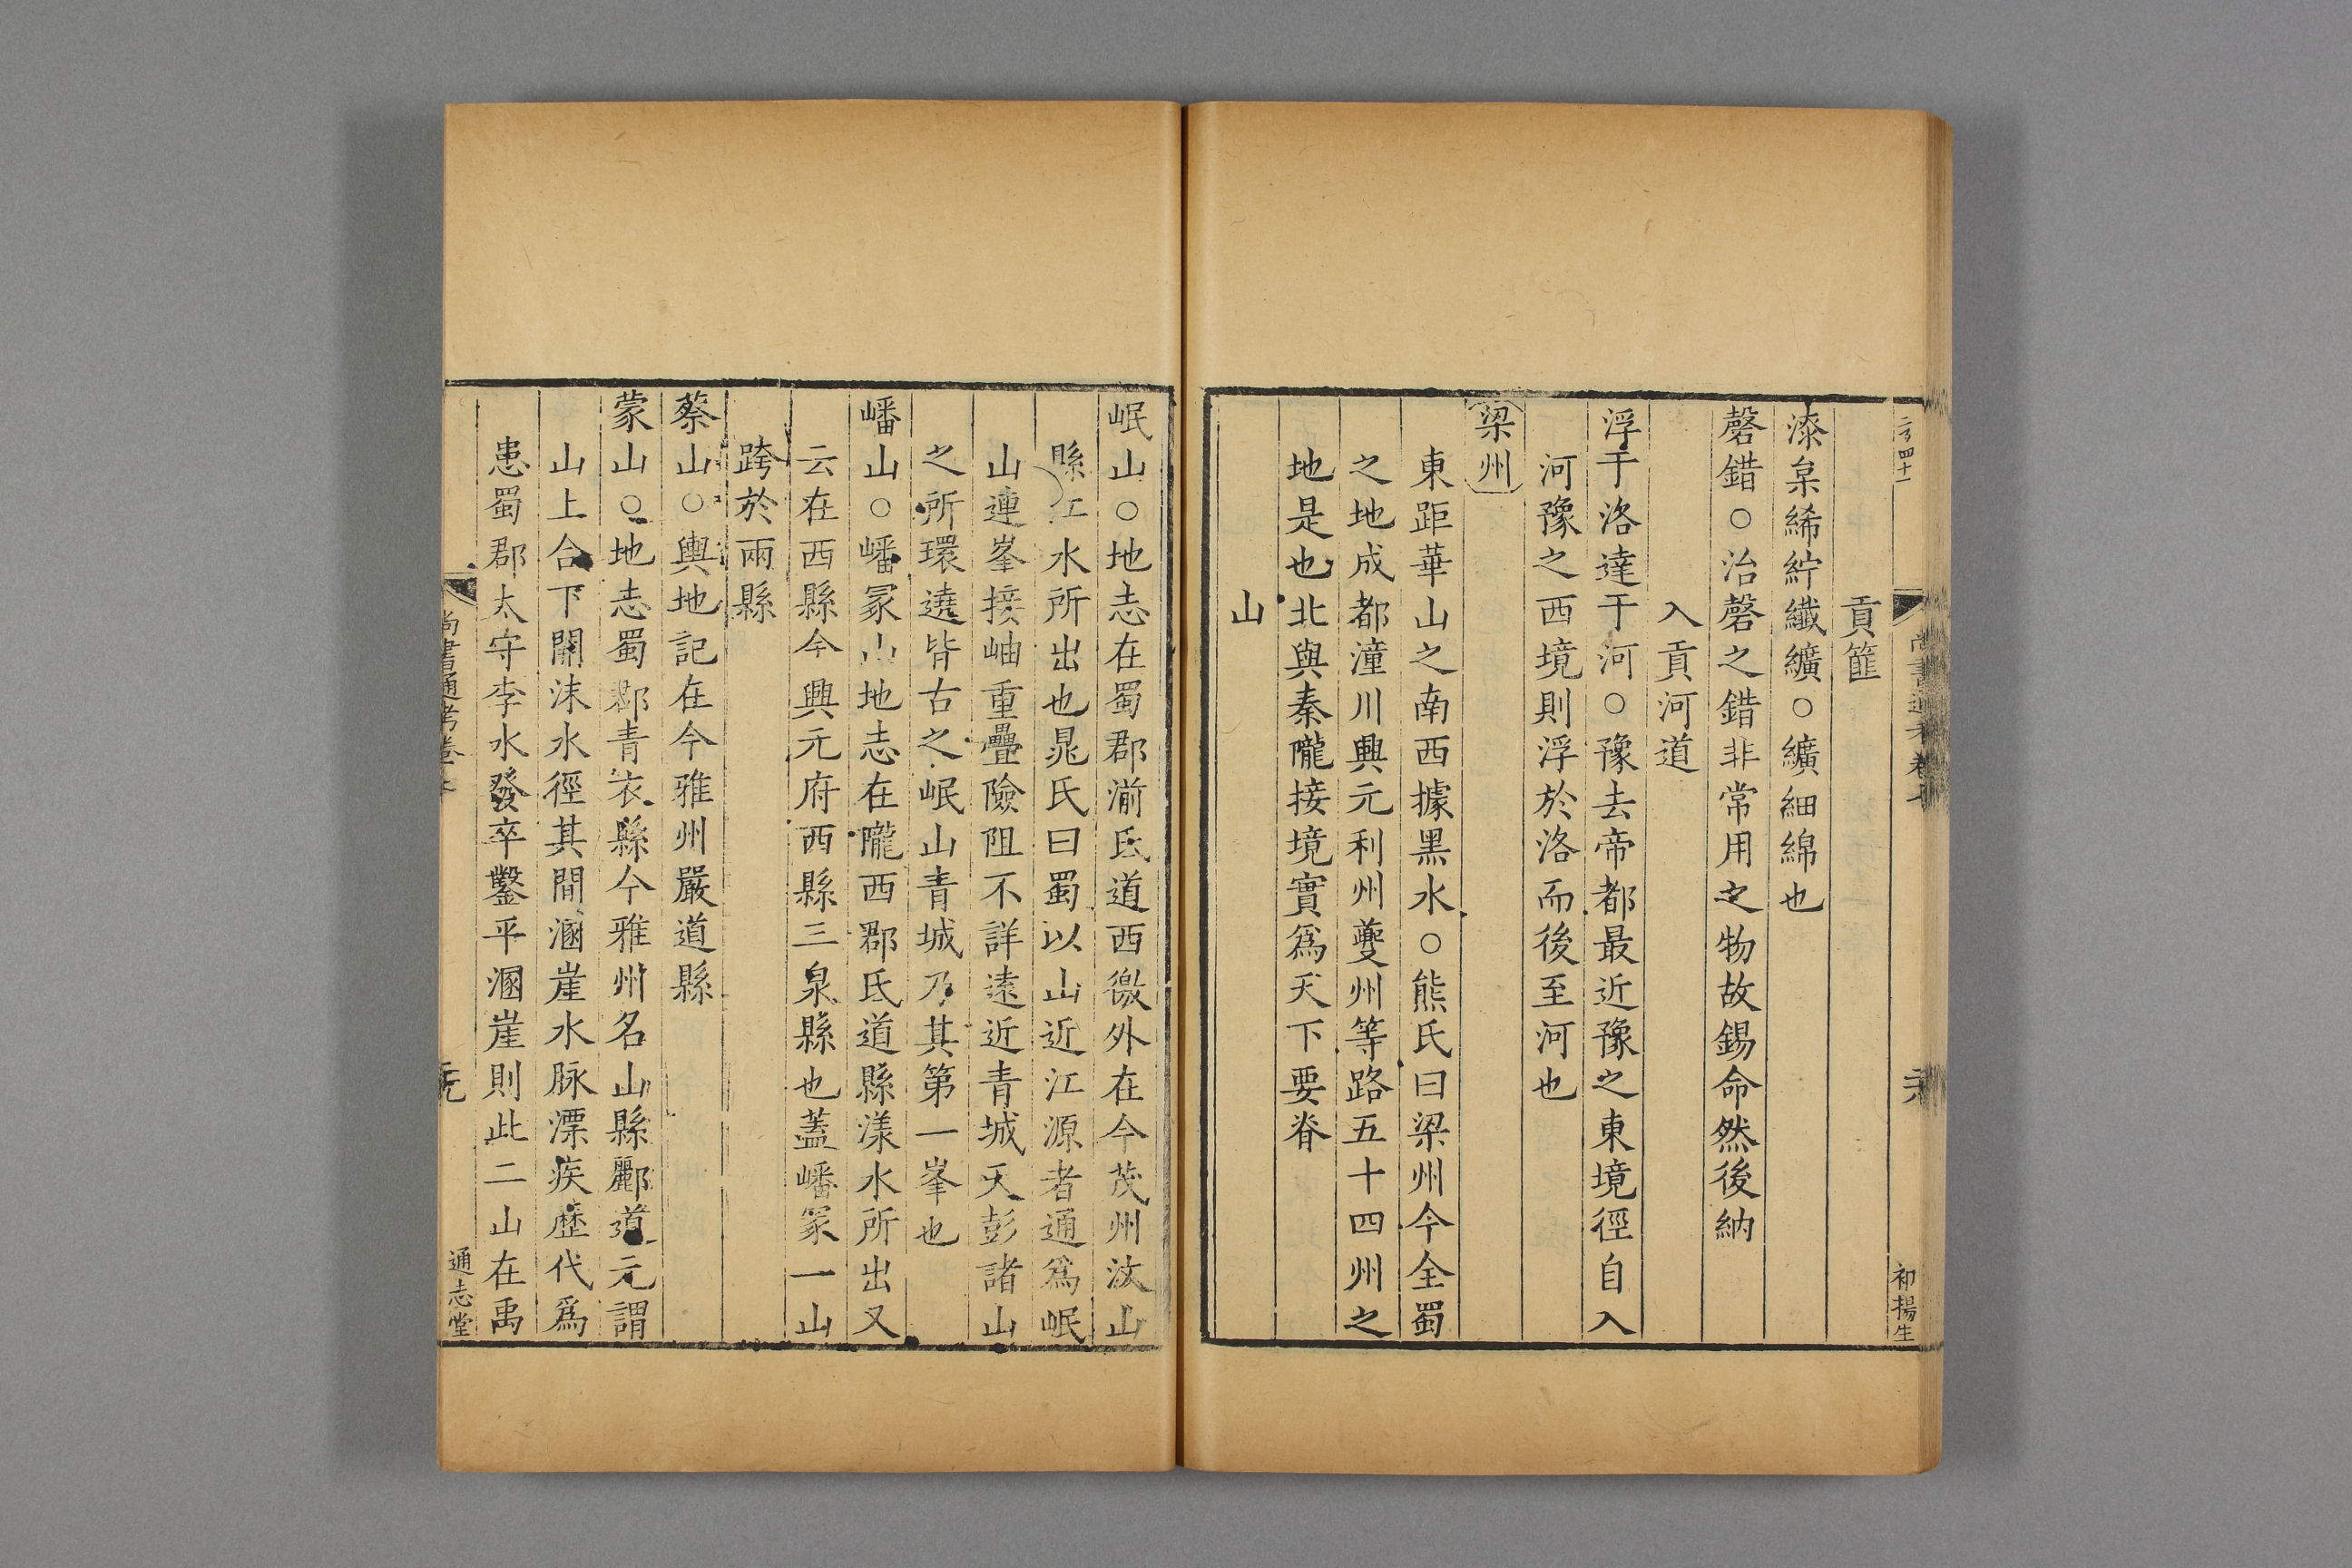 貢篚
漆枲絺紵纖纊○纊細綿也
磬錯○治磬之錯非常用之物故錫命然後納
入貢河道
浮于洛達于河○豫去帝都最近豫之東境徑自入
河豫之西境則浮於洛而後至河也
梁州
東距華山之南西據黑水○熊氏曰梁州今全蜀
之地成都潼川興元利州夔州等路五十四州之
地是也北與秦隴接境實爲天下要脊
山
初揚生
岷山○地志在蜀郡湔氐道西徼外在今茂州汶山
縣江水所出也晁氏曰蜀以山近江源者通爲岷
山連峯接岫重疊險阻不詳遠近青城天彭諸山
之所環遶皆古之岷山青城乃其第一峯也
嶓山○嶓冢山地志在隴西郡氐道縣漾水所出又
云在西縣今興元府西縣三泉縣也蓋嶓冢一山
跨於兩縣
蔡山○輿地記在今雅州嚴道縣
蒙山○地志蜀郡青衣縣今雅州名山縣酈道元謂
山上合下開沫水徑其間溷崖水脉漂疾歷代爲
患蜀郡太守李水發卒鑿平溷崖則此二山在禹
尚書通考卷
通志堂